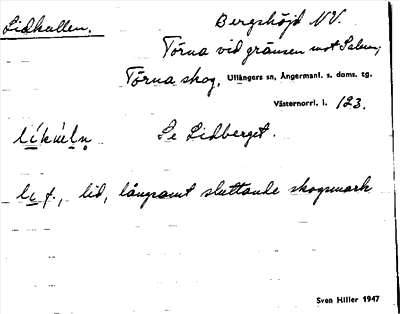 Lidkullen.
Bergshöjd NV.
Törna vid gränsen mot Salum;
Törna skog, Ullångers sn, Ångermanl. s. doms. tg.
Västernorrl. l. 123.
Se Lidberget.
li f., lid, långsamt sluttande skogsmark
Sven Hiller 1947